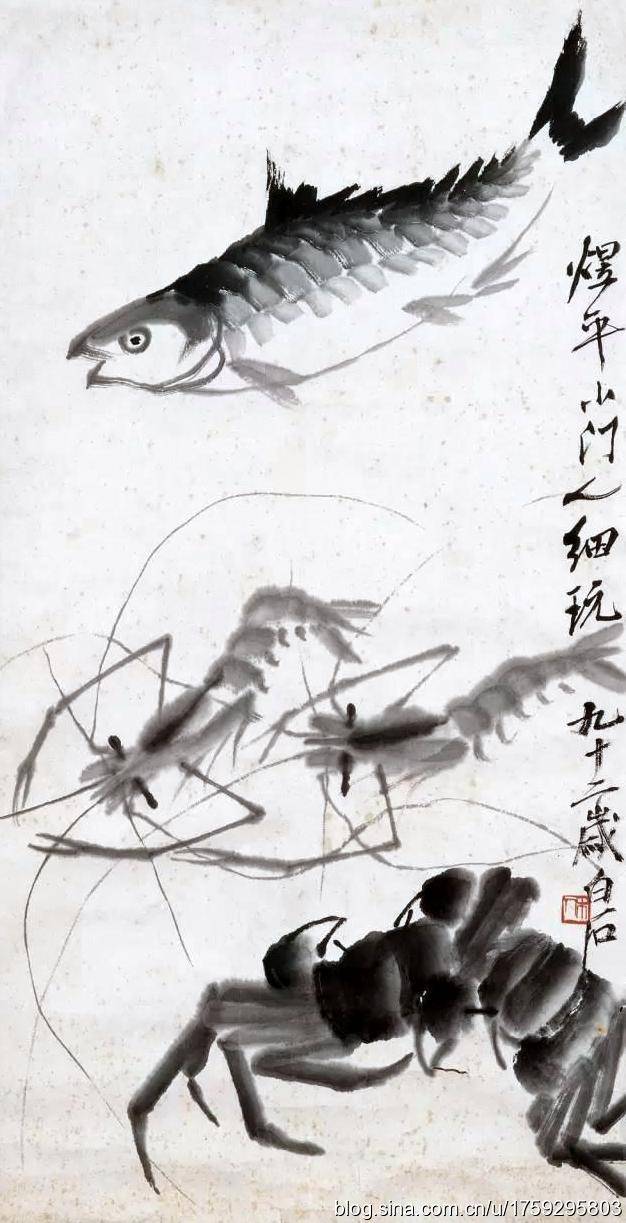 煜平小门人细玩
九十二岁白石
blog.sina.com.cn/u/1759295803